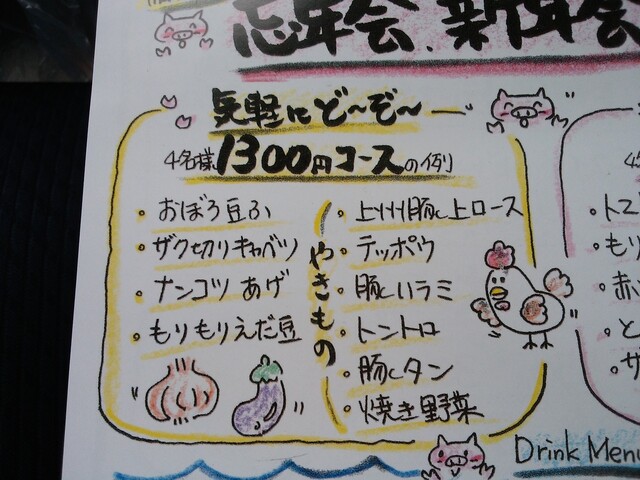 忘年会、新年会
気軽にど〜ぞ〜
4名様 1300円コースの例り
・おぼろ豆ふ
・ザク切りキャベツ
・ナンコツあげ
・もりもりえだ豆
やきもの
・上州豚上ロース
・テッポウ
・豚ハラミ
・トントロ
・豚タン
・焼き野菜
Drink Menu